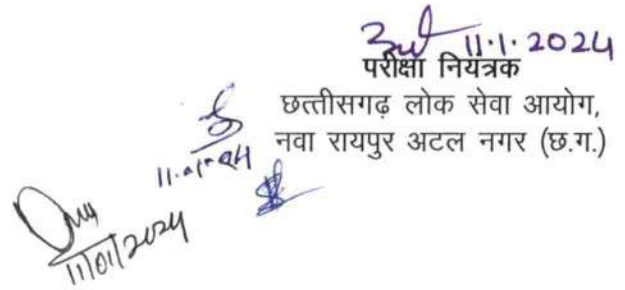 11.1.2024
परीक्षा नियंत्रक
छत्तीसगढ़ लोक सेवा आयोग,
नवा रायपुर अटल नगर (छ.ग.)
11.01.24
11/01/2024